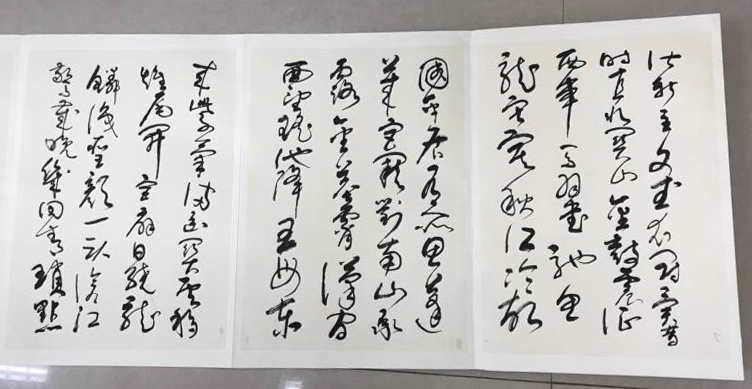 皆新主文武衣冠異昔
時直北關山金鼓震征
西車馬羽書馳魚
龍寂寞秋江冷故
國平居有所思蓬
萊宮闕對南山承
露金莖霄漢間
西望瑤池降王母東
來紫氣滿函關雲移
雉尾開宮扇日繞龍
鱗識聖顏一臥滄江
驚歲晚幾回青瑣點